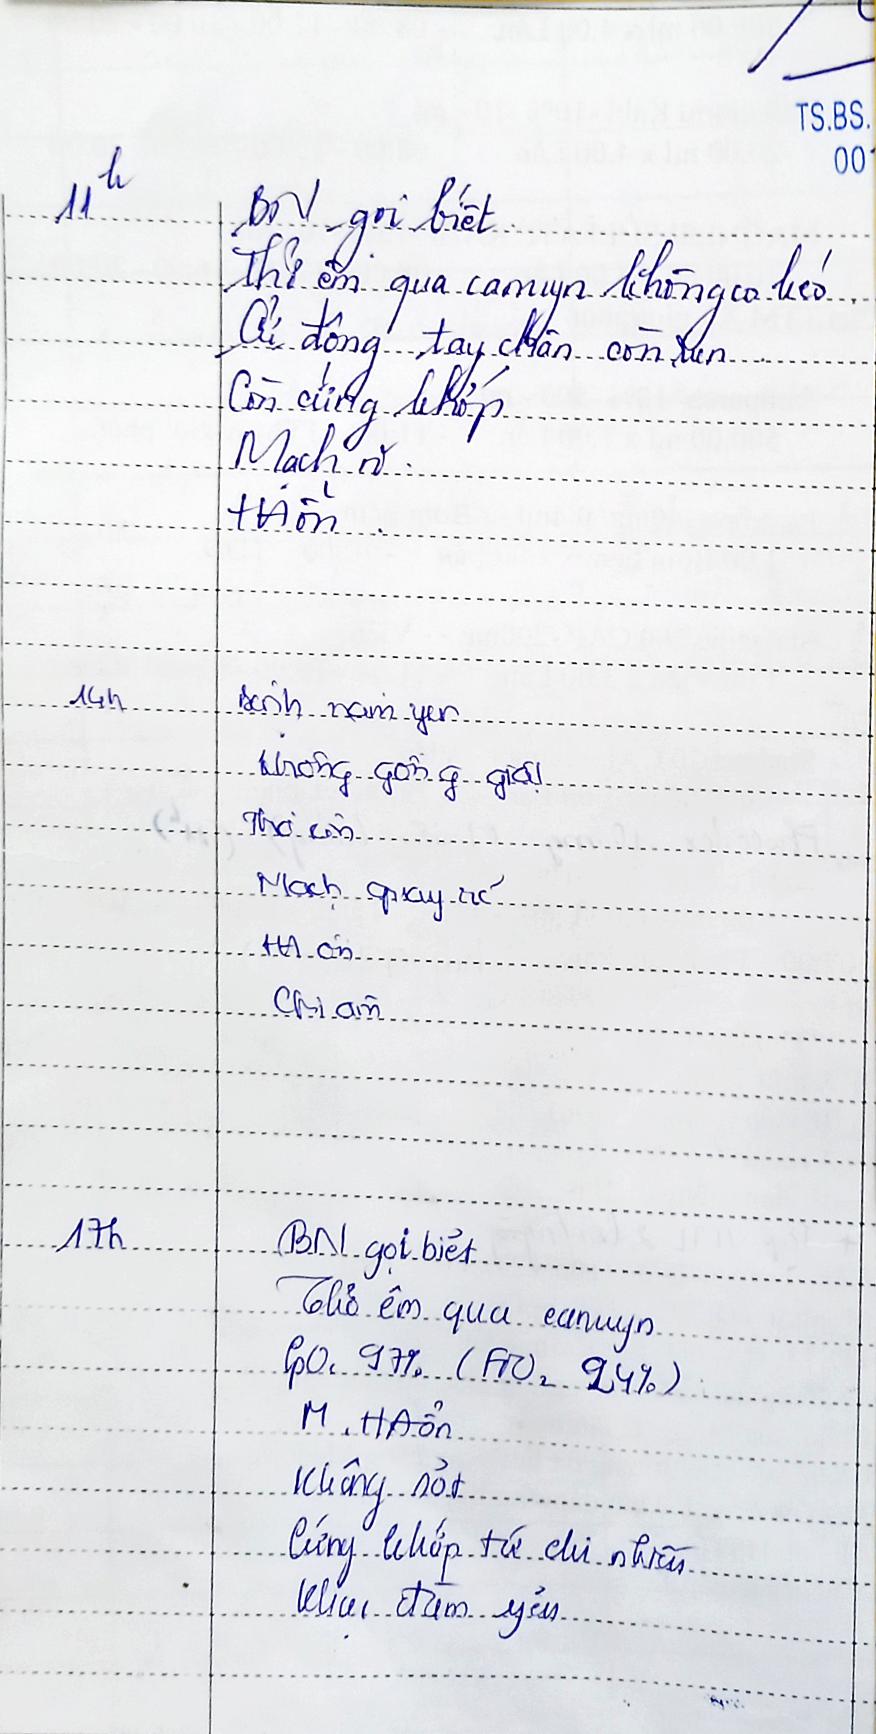 TS.BS.
00
11h
BN gọi biết
Thở êm qua canuyn không co kéo
Cử động tay chân còn run
Còn cứng khớp
Mạch rõ
HA ổn
14h
Bệnh nằm yên
không gồng giật
Thở êm
Mạch quay rõ
HA ổn
Chi ấm
17h
BN gọi biết
Thở êm qua canuyn
SpO2 97% (FiO2 24%)
M, HA ổn
Không sốt
Cứng khớp tứ chi nhiều
Khạc đàm yếu